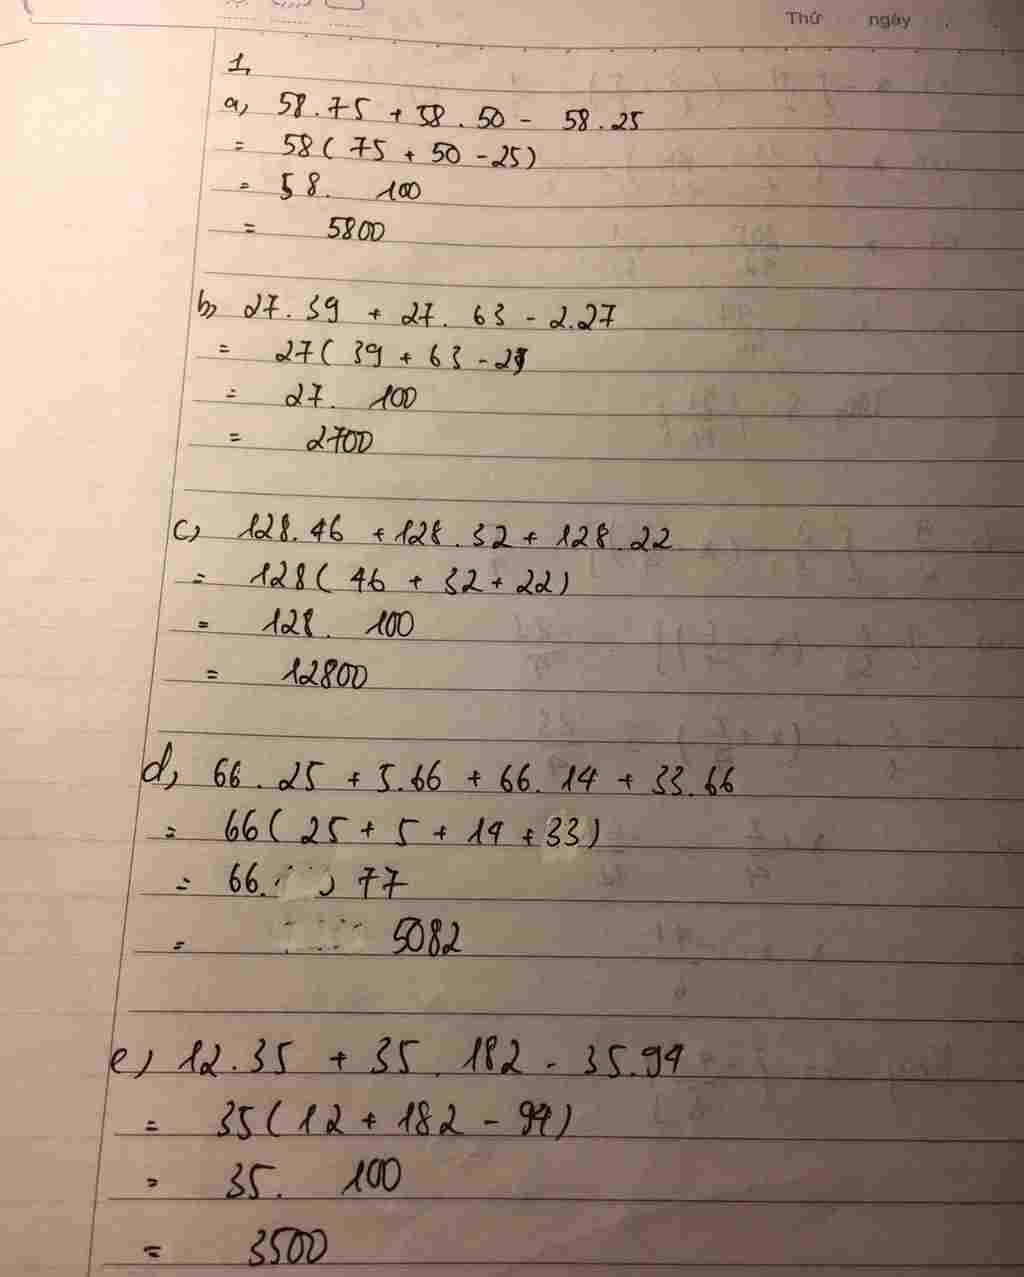 Thứ ngày
1,
a, 58.75 + 58.50 - 58.25
= 58(75 + 50 - 25)
= 58. 100
= 5800
b, 27.39 + 27.63 - 2.27
= 27(39 + 63 - 2)
= 27. 100
= 2700
c, 128.46 + 128.32 + 128.22
= 128(46 + 32 + 22)
= 128. 100
= 12800
d, 66.25 + 5.66 + 66.14 + 33.66
= 66(25 + 5 + 14 + 33)
= 66. 77
= 5082
e) 12.35 + 35.182 - 35.94
= 35(12 + 182 - 94)
= 35. 100
= 3500